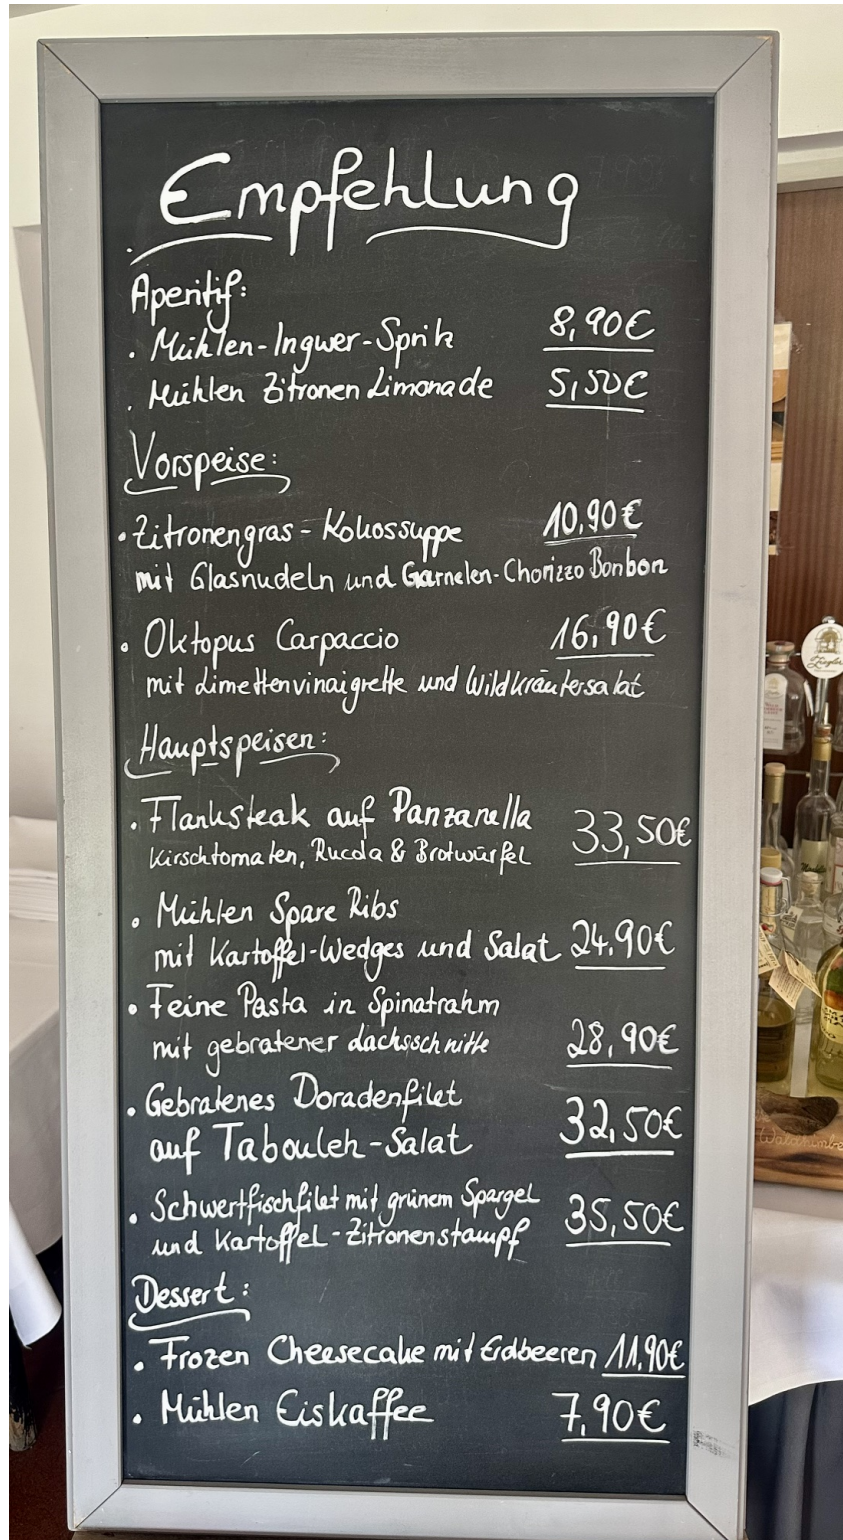 Empfehlung
Aperitif:
. Mühlen-Ingwer-Spritz 8,90€
. Mühlen Zitronen Limonade 5,50€
Vorspeise:
• Zitronengras - Kokossuppe 10,90€
mit Glasnudeln und Garnelen-Chorizzo Bonbon
• Oktopus Carpaccio 16,90€
mit Limettenvinaigrette und Wildkräutersalat
Hauptspeisen:
• Flanksteak auf Panzanella 33,50€
Kirschtomaten, Rucola & Brotwürfel
• Mühlen Spare Ribs
mit Kartoffel-Wedges und Salat 24,90€
• Feine Pasta in Spinatrahm
mit gebratener dachsschnitte 28,90€
• Gebratenes Doradenfilet
auf Tabouleh-Salat 32,50€
• Schwertfischfilet mit grünem Spargel 35,50€
und Kartoffel-Zitronenstampf
Dessert:
• Frozen Cheesecake mit Erdbeeren 11,90€
• Mühlen Eiskaffee 7,90€
Ziegler